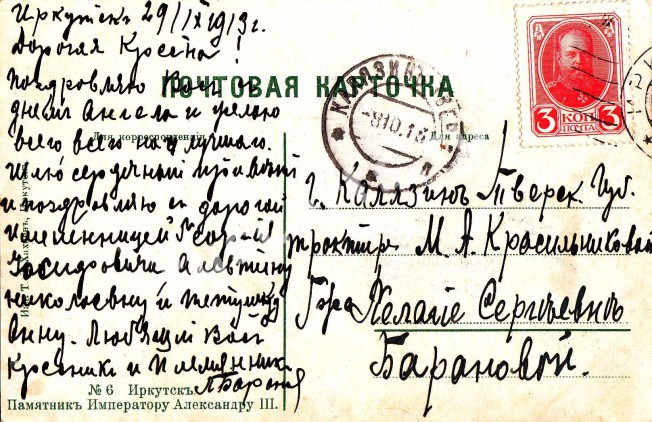 Иркутскъ 29/IX 1913 г.
Дорогая Крёсна!
Поздровляю Васъ съ
днемъ Ангела и желаю
всего всего наилучшаго.
Шлю сердечный привѣтъ
и поздровляю съ дорогой
имениницей Георгія
Иосифовича Алевтину
Николаевну и тетушку
Анну. Любящій Васъ
крестникъ и племянникъ
ПОЧТОВАЯ КАРТОЧКА
Для корреспонденціи
Для адреса
КАЛЯЗИНЪ ТВЕР.
-8 10 13
3 КОП 3
ПОЧТА
г. Калязинъ Тверск. Губ.
трактиръ М. А. Красильниковой
Пелагіе Сергѣевнѣ
Барановой.
№ 6 Иркутскъ.
Памятникъ Императору Александру III.